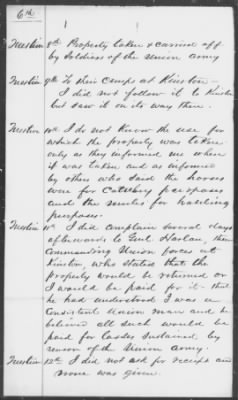 6th
Question 8th Property taken & carried off
by Soldiers of the Union Army
Question 9th To their camps at Kinston—
I did not follow it to Kinston
but saw it on its way there.
Question 10th I do not know the use for
which the property was taken
only as they informed me when
it was taken, and as informed
by others who said the horses
were for Cavalry purposes
and the mules for hauling
purposes.
Question 11th I did complain several days
afterwards to Genl. Harlan, then
Commanding Union forces at
Kinston, who stated that the
property would be returned or
I would be paid for it— that
he had understood I was a
Consistent Union man and he
believed all such would be
paid for losses sustained by
reason of the Union Army.
Question 12th I did not ask for receipt and
none was given.